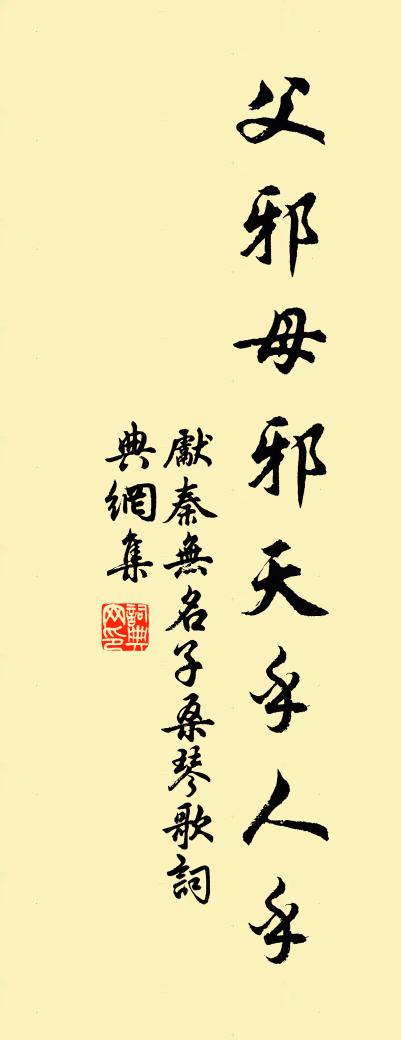 父邪母邪天乎人乎
獻秦無名子桑琴歌詞
典網集
詞典網印